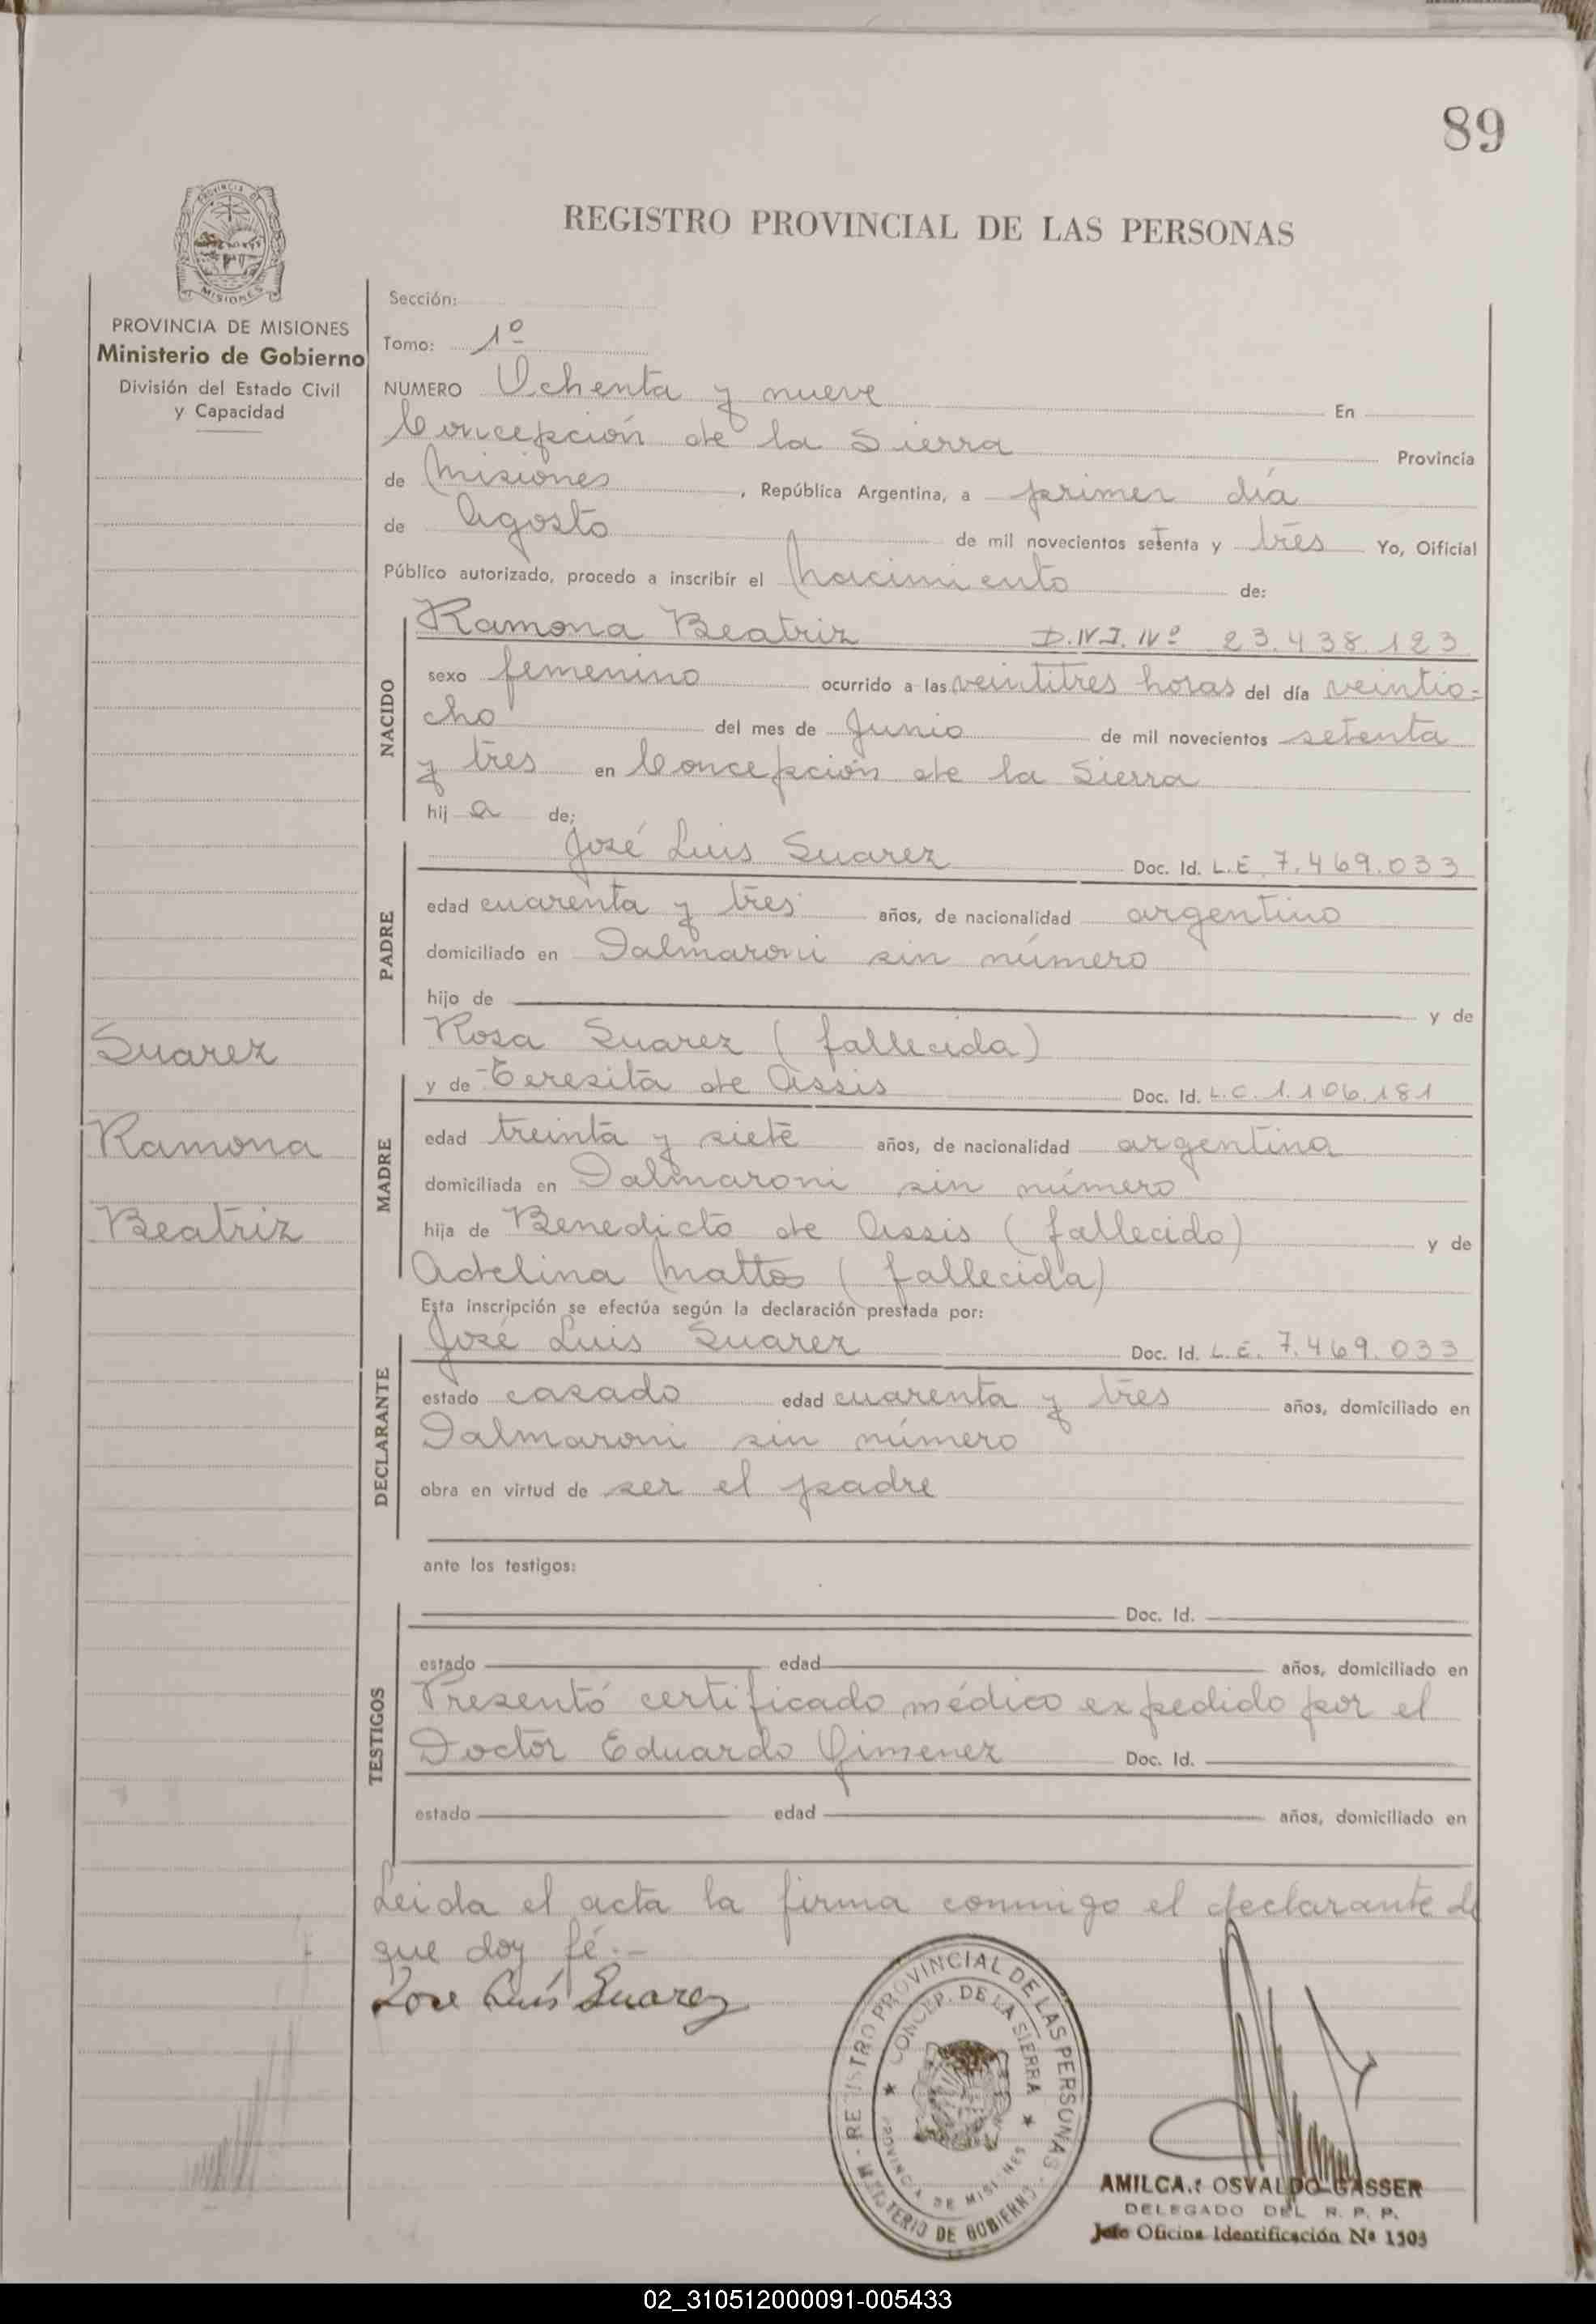 89
REGISTRO PROVINCIAL DE LAS PERSONAS
PROVINCIA DE MISIONES
Ministerio de Gobierno
División del Estado Civil
y Capacidad
Suarez
Ramona
Beatriz
Sección:
Tomo: 1º
NUMERO Ochenta y nueve En
Concepción de la Sierra Provincia
de Misiones, República Argentina, a primer día
de Agosto de mil novecientos setenta y tres Yo, Oificial
Público autorizado, procedo a inscribir el Nacimiento de:
NACIDO
Ramona Beatriz D.N.I. Nº 23.438.123
sexo femenino ocurrido a las veintitres horas del día veintio=
cho del mes de Junio de mil novecientos setenta
y tres en Concepción de la Sierra
hij a de;
PADRE
José Luis Suarez Doc. Id. L.E. 7.469.033
edad cuarenta y tres años, de nacionalidad argentino
domiciliado en Dalmaroni sin número
hijo de y de
Rosa Suarez (fallecida)
MADRE
y de Teresita de Assis Doc. Id. L.C. 1.106.181
edad treinta y siete años, de nacionalidad argentina
domiciliada en Dalmaroni sin número
hija de Benedicto de Assis (fallecido) y de
Adelina Mattos (fallecida)
Esta inscripción se efectúa según la declaración prestada por:
DECLARANTE
José Luis Suarez Doc. Id. L.E. 7.469.033
estado casado edad cuarenta y tres años, domiciliado en
Dalmaroni sin número
obra en virtud de ser el padre
ante los testigos:
TESTIGOS
Doc. Id.
estado edad años, domiciliado en
Presentó certificado médico expedido por el
Doctor Eduardo Gimenez Doc. Id.
estado edad años, domiciliado en
Leida el acta la firma conmigo el declarante de
que doy fé.-
Jose Luis Suarez
REGISTRO PROVINCIAL DE LAS PERSONAS
MINISTERIO DE GOBIERNO
CONCEP. DE LA SIERRA
PROVINCIA DE MISIONES
AMILCAR OSVALDO GASSER
DELEGADO DEL R. P. P.
Jefe Oficina Identificación Nº 1503
02_310512000091-005433